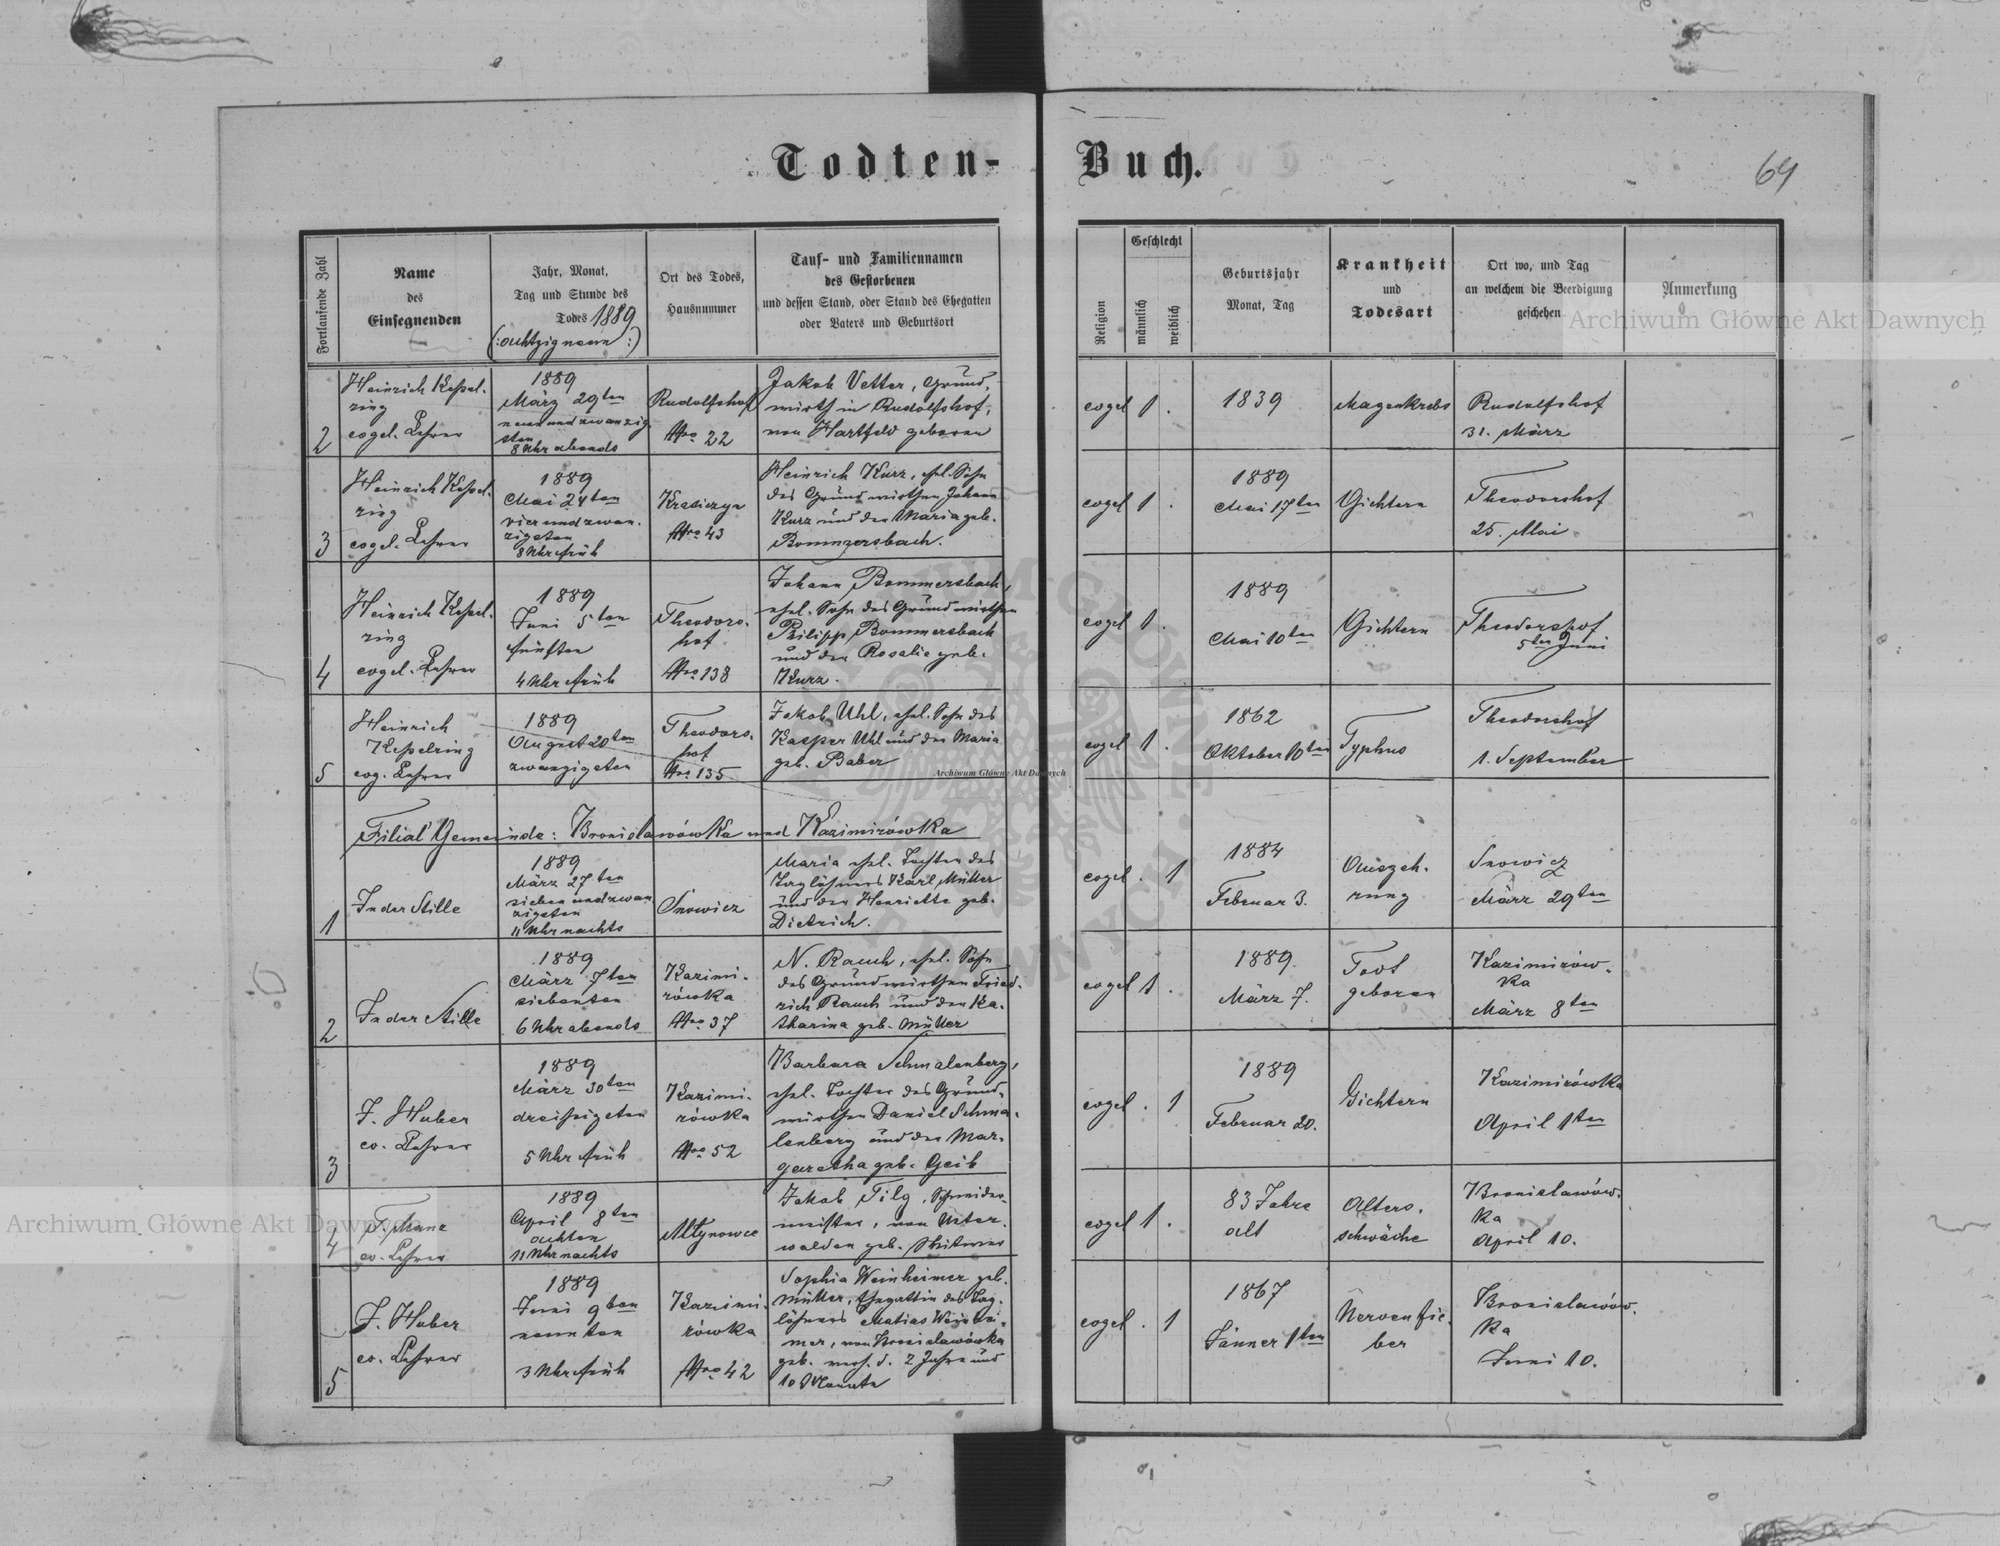 Todten-
Buch.
64
Fortlaufende Zahl
Name
des
Einsegnenden
Jahr, Monat,
Tag und Stunde des
Todes 1889
(:achtzig neun:)
Ort des Todes,
Hausnummer
Tauf- und Familiennamen
des Gestorbenen
und dessen Stand, oder Stand des Ehegatten
oder Vaters und Geburtsort
Religion
Geschlecht
männlich
weiblich
Geburtsjahr
Monat, Tag
Krankheit
und
Todesart
Ort wo, und Tag
an welchem die Beerdigung
geschehen
Anmerkung
2
Heinrich Keßel-
ring
evgel. Lehrer
1889
März 29ten
neunundzwanzig-
sten
8 Uhr abends
Rudolfshof
Nro 22
Jakob Vetter, Grund-
wirth in Rudolfshof,
von Hartfeld geboren
evgel 1 .
1839
Magenkrebs
Rudolfshof
31. März
3
Heinrich Keßel-
ring
evgel. Lehrer
1889
Mai 24ten
vierundzwan-
zigsten
8 Uhr früh
Krasiczyn
Nro 43
Heinrich Kurz, ehel. Sohn
des Grundwirthen Johann
Kurz und der Maria geb.
Bommersbach.
evgel 1 .
1889
Mai 17ten
Gichtern
Theodorshof
25. Mai
4
Heinrich Keßel-
ring
evgel. Lehrer
1889
Juni 5ten
fünften
4 Uhr früh
Theodors-
hof
Nro 138
Johann Bommersbach,
ehel. Sohn des Grundwirthen
Philipp Bommersbach
und der Rosalie geb.
Kurz.
evgel 1 .
1889
Mai 10ten
Gichtern
Theodorshof
5ten Juni
5
Heinrich
Keßelring
evg. Lehrer
1889
August 20ten
zwanzigsten
Theodors-
hof
Nro 135
Jakob Uhl, ehel. Sohn des
Kasper Uhl und der Maria
geb. Baber
evgel 1 .
1862
Oktober 10ten
Typhus
Theodorshof
1. September
Filial Gemeinde: Bronislawówka und Kazimirówka
1
In der Stille
1889
März 27ten
siebenundzwan
zigsten
11 Uhr nachts
Snowicz
Maria ehel. Tochter des
Taglöhners Karl Müller
und der Henriette geb.
Dietrich.
evgel . 1
1884
Februar 3.
Auszeh-
rung
Snowicz
März 29ten
2
In der Stille
1889
März 7ten
siebenten
6 Uhr abends
Kazimi-
rówka
Nro 37
N. Rauch, ehel. Sohn
des Grundwirthen Fried-
rich Rauch und der Ka-
tharina geb. Müller
evgel 1 .
1889.
März 7.
Todt
geboren
Kazimirów-
ka
März 8ten
3
J. Huber
ev. Lehrer
1889
März 30ten
dreißigsten
5 Uhr früh
Kazimi-
rówka
Nro 52
Barbara Schmalenberg,
ehel. Tochter des Grund-
wirthen Daniel Schma-
lenberg und der Mar-
garetha geb. Geib
evgel . 1
1889
Februar 20.
Gichtern
Kazimirówka
April 1ten
4
ev. Lehrer
1889
April 8ten
achten
11 Uhr nachts
Mlynowce
Jakob Filg, Schneider-
meister, von Unter-
walden geb.
evgel 1 .
83 Jahre
alt
Alters-
schwäche
Bronislawów-
ka
April 10.
5
J. Huber
ev. Lehrer
1889
Juni 9ten
neunten
3 Uhr früh
Kazimi-
rówka
Nro 42
Sophia Weinheimer geb.
Müller, Ehegattin des Tag-
löhners Matias Weinhei-
mer, von Bronislawówka
geb. verh. d. 2 Jahre und
10 Monate
evgel . 1
1867
Jänner 1ten
Nervenfie-
ber
Bronislawów-
ka
Juni 10.
Archiwum Główne Akt Dawnych
Archiwum Główne Akt Dawnych
Archiwum Główne Akt Dawnych